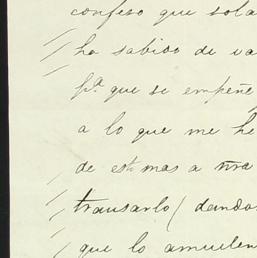 confeso que sola
ha sabido de va
pª que se empeñe
a lo que me he
de est mas a ñra
transarlo (dando
que lo amuelen